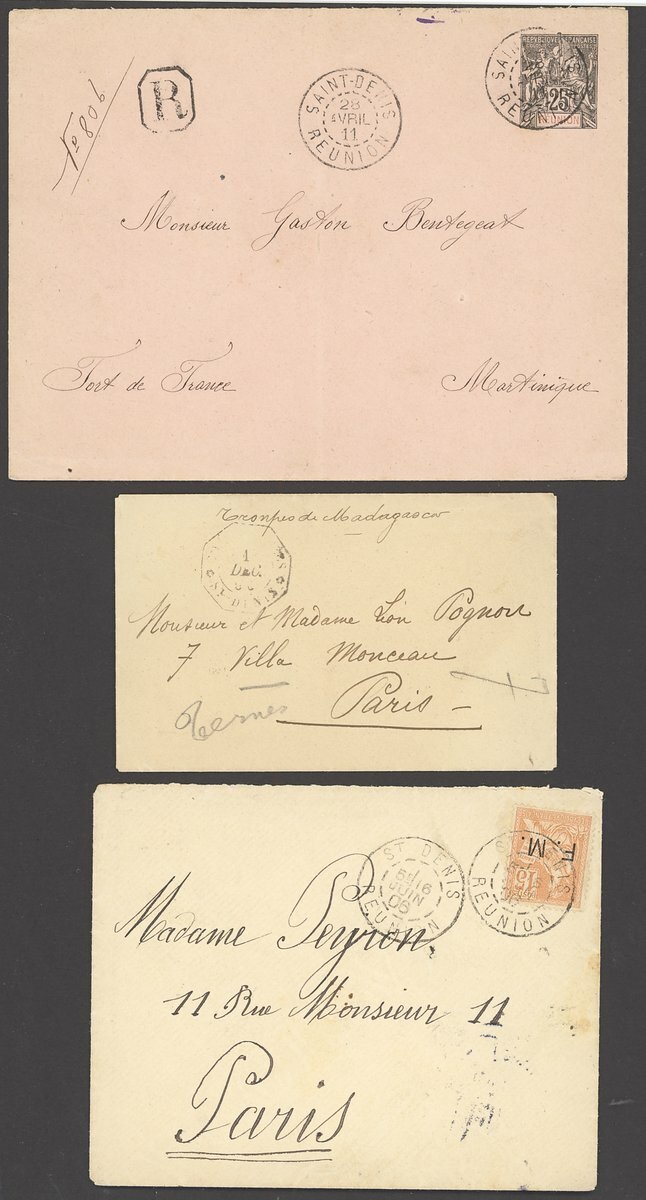 Nº 806
R
SAINT-DENIS
28
AVRIL
11
REUNION
REPUBLIQUE FRANÇAISE
25
REUNION
SAINT-DENIS
REUNION
Monsieur Gaston Bentegeat
Fort de France Martinique
Troupes de Madagascar
1
DEC.
ST DENIS
Monsieur et Madame Léon Pognon
7 Villa Monceau
Paris
Ternes
F. M.
15
ST DENIS
16
JUIN
06
REUNION
ST DENIS
REUNION
Madame Peyron.
11 Rue Monsieur 11
Paris